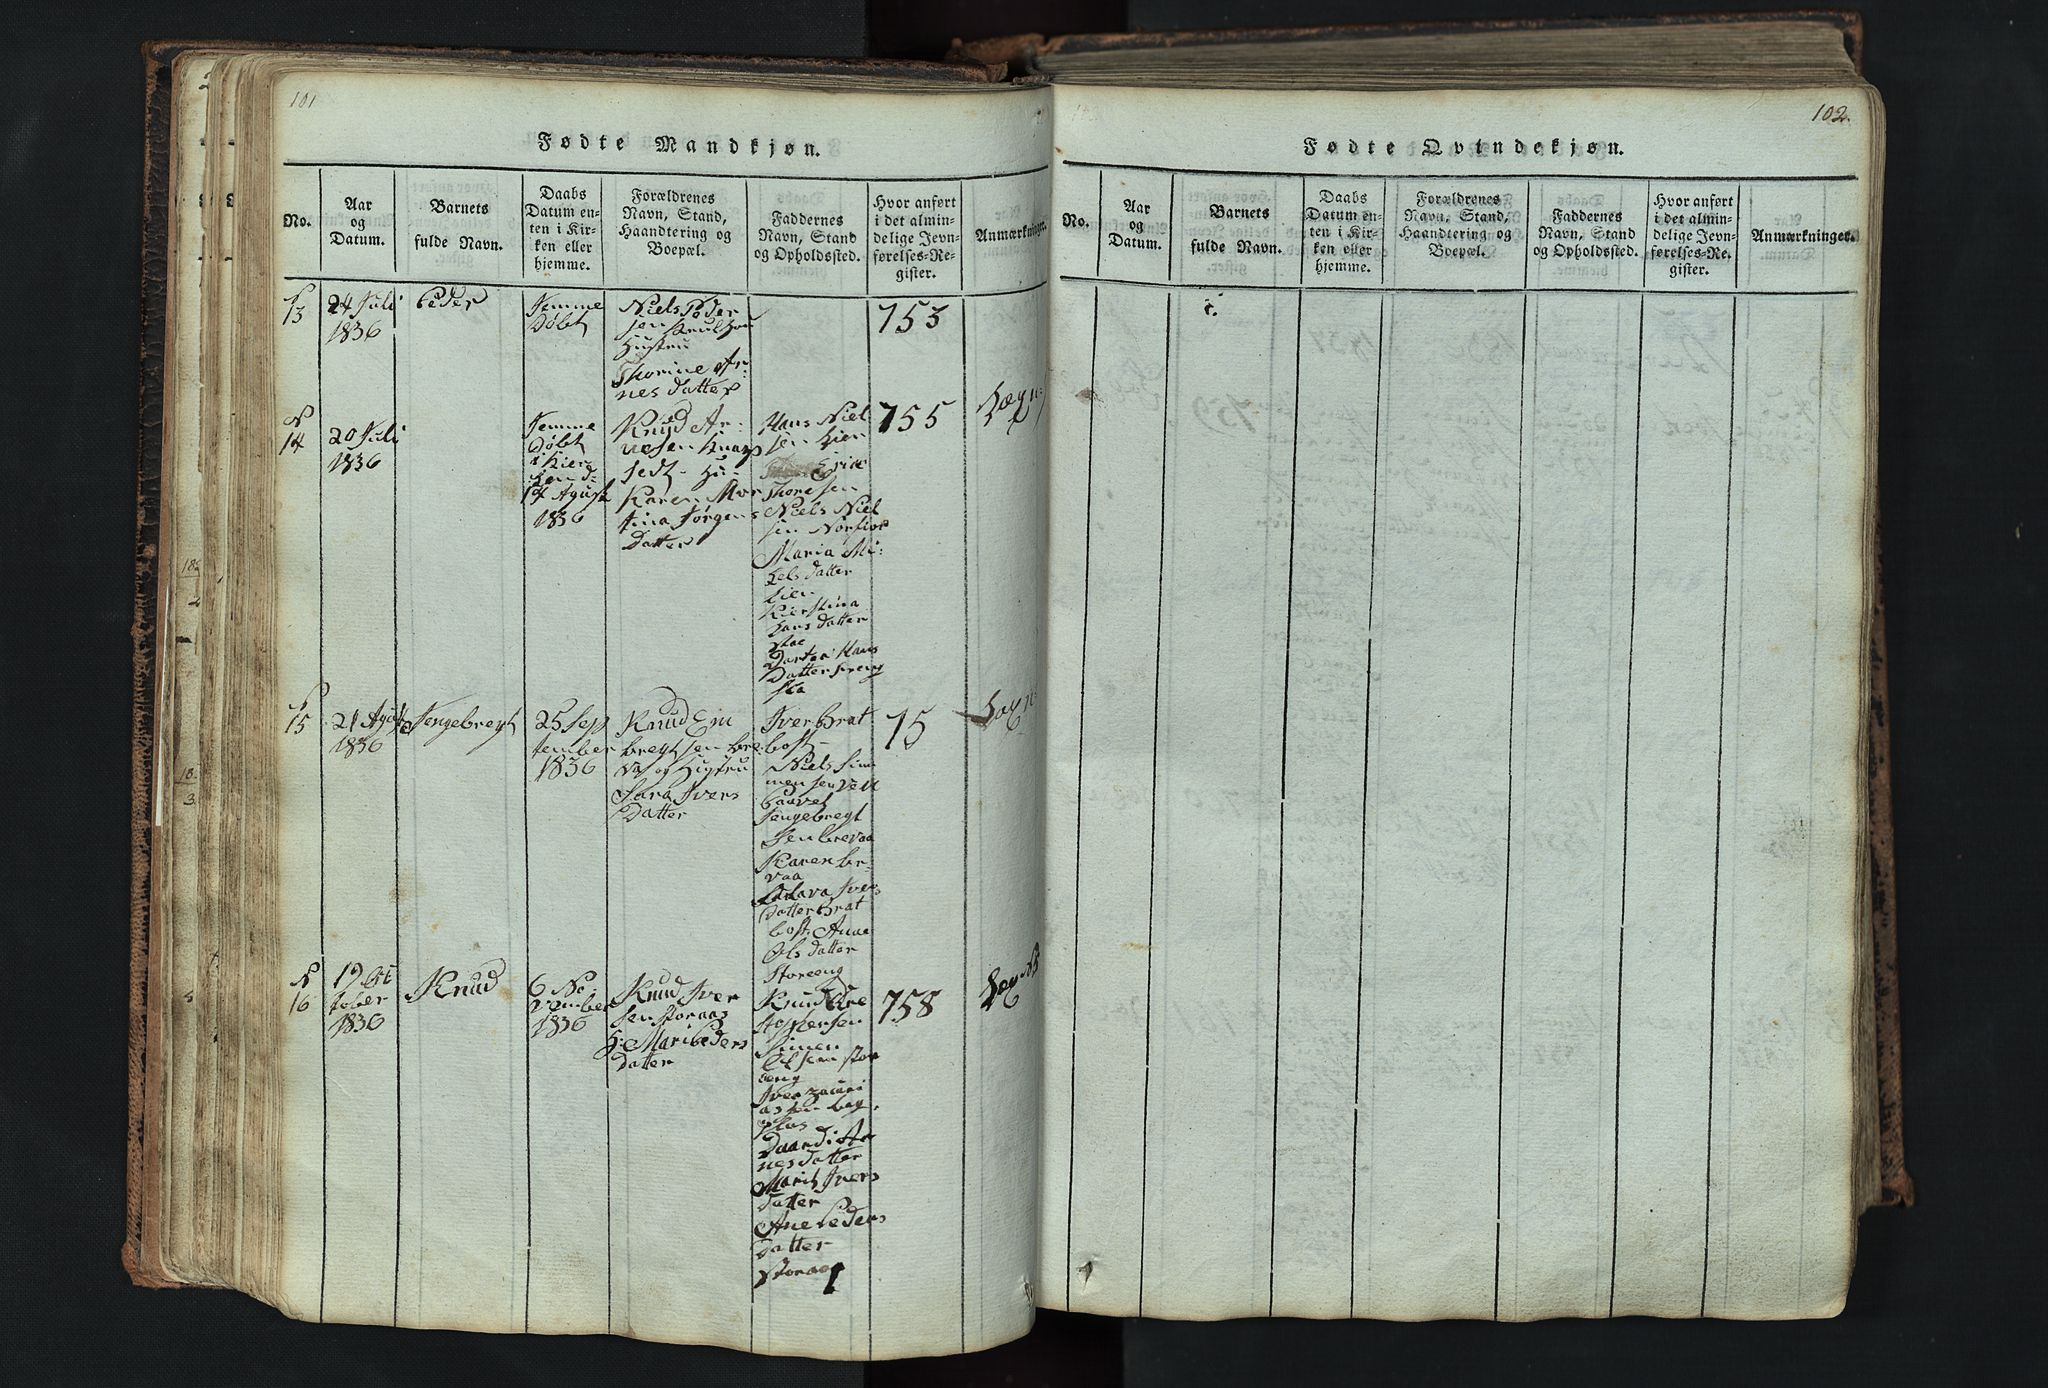 101
Fødte Mandkjøn.
No.
Aar
og
Datum.
Barnets
fulde Navn.
Daabs
Datum en-
ten i Kir-
ken eller
hjemme.
Forældrenes
Navn, Stand,
Haandtering og
Boepæl.
Faddernes
Navn, Stand
og Opholdssted.
Hvor anført
i det almin-
delige Jevn-
førelses-Re-
gister.
Anmærkninger.
13
24 Juli
1836
Peder
Jemme
Døbt
Niels Peder
sen
Hustru
Thorine Ar-
nes datter
753
N
14
20 Juli
1836
Jemme
Døbt
Kier
14 Agust
1836
Knud Ar-
nesen
Karen Mor
tina Jørgens
datter
Hans Niel
sen Lien
Erik
Thoresen
Niels Niel
sen
Maria Mi-
kels datter
Lien
Kierstina
Hans datter
Hans
Datter
755
15
21 Agust
1836
Jengebregt
25 Sep
tember
1836
Knud Em
bregtsen Bre
va og Hustru
Sara Ivers
Datter
Iver Brat
bost
Niels Sim
mensen
Paavel
Jengebregt
sen Brevaa
Karen Br-
vaa
Ivers
datter Brat
bost. Anne
Ols datter
Storeeng
75
N
16
19 Ok
tober
1836
Knud
6 No-
vember
1836
Knud Iver
sen Storaas
H: Mari Peders
datter
Knud Are
Simen
Olsen Stor
eng
Iver
Ar
nes datter
Marit Ivers
datter
Ane Peders
datter
Storaas
758
102.
Fødte Qvindekjøn.
No.
Aar
og
Datum.
Barnets
fulde Navn.
Daabs
Datum en-
ten i Kir-
ken eller
hjemme.
Forældrenes
Navn, Stand,
Haandtering og
Boepæl.
Faddernes
Navn, Stand
og Opholdssted.
Hvor anført
i det almin-
delige Jevn-
førelses-Re-
gister.
Anmærkninger.